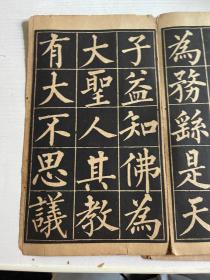 為務繇是天
子益知佛為
大聖人其教
有大不思議